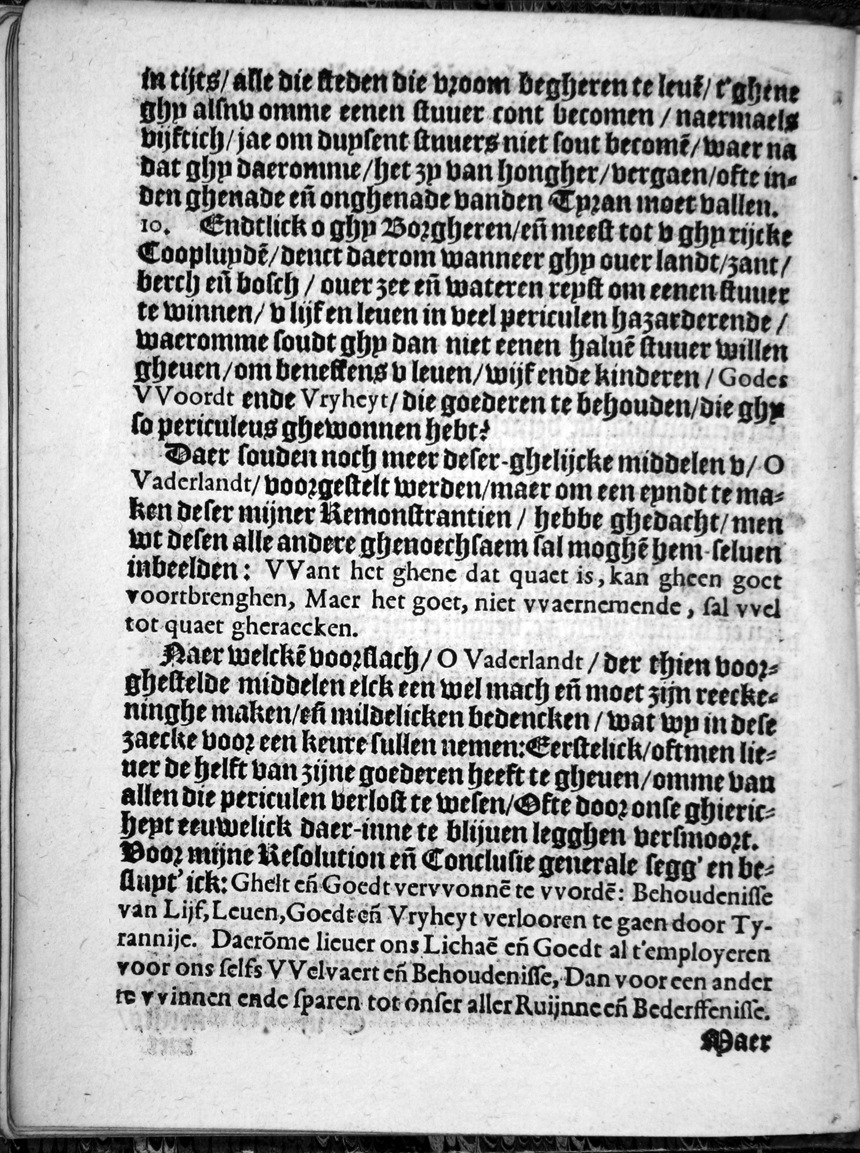 in tijts/ alle die steden die vroom begheren te leuē/ t'ghene
ghy alsnv omme eenen stuuer cont becomen / naermaels
vijftich/ jae om duysent stuuers niet sout becomē/ waer na
dat ghy daeromme/ het zy van hongher/ vergaen/ ofte in-
den ghenade eñ onghenade vanden Tyran moet vallen.
10. Endtlick o ghy Borgheren/ eñ meest tot v ghy rijcke
Coopluydē/ denct daerom wanneer ghy ouer landt/ zant/
berch eñ bosch / ouer zee eñ wateren reyst om eenen stuuer
te winnen/ v lijf en leuen in veel periculen hazarderende /
waeromme soudt ghy dan niet eenen haluē stuuer willen
gheuen/ om beneffens v leuen/ wijf ende kinderen / Godes
VVoordt ende Vryheyt/ die goederen te behouden/ die ghy
so periculeus ghewonnen hebt?
Daer souden noch meer deser-ghelijcke middelen v/ O
Vaderlandt/ voorgestelt werden/ maer om een eyndt te ma-
ken deser mijner Remonstrantien / hebbe ghedacht/ men
wt desen alle andere ghenoechsaem sal moghē hem-seluen
inbeelden: VVant het ghene dat quaet is, kan gheen goet
voortbrenghen, Maer het goet, niet vvaernemende, sal vvel
tot quaet gheraecken.
Naer welckē voorslach/ O Vaderlandt / der thien voor-
ghestelde middelen elck een wel mach eñ moet zijn reecke-
ninghe maken/ eñ mildelicken bedencken / wat wy in dese
zaecke voor een keure sullen nemen: Eerstelick/ oftmen lie-
uer de helft van zijne goederen heeft te gheuen/ omme van
allen die periculen verlost te wesen/ Ofte door onse ghieric-
heyt eeuwelick daer-inne te blijuen legghen versmoort.
Voor mijne Resolution eñ Conclusie generale segg' en be-
sluyt' ick: Ghelt eñ Goedt vervvonnē te vvordē: Behoudenisse
van Lijf, Leuen, Goedt eñ Vryheyt verlooren te gaen door Ty-
rannije. Daerōme lieuer ons Lichaē eñ Goedt al t'employeren
voor ons selfs VVelvaert eñ Behoudenisse, Dan voor een ander
te vvinnen ende sparen tot onser aller Ruijnne eñ Bederffenisse.
Maer